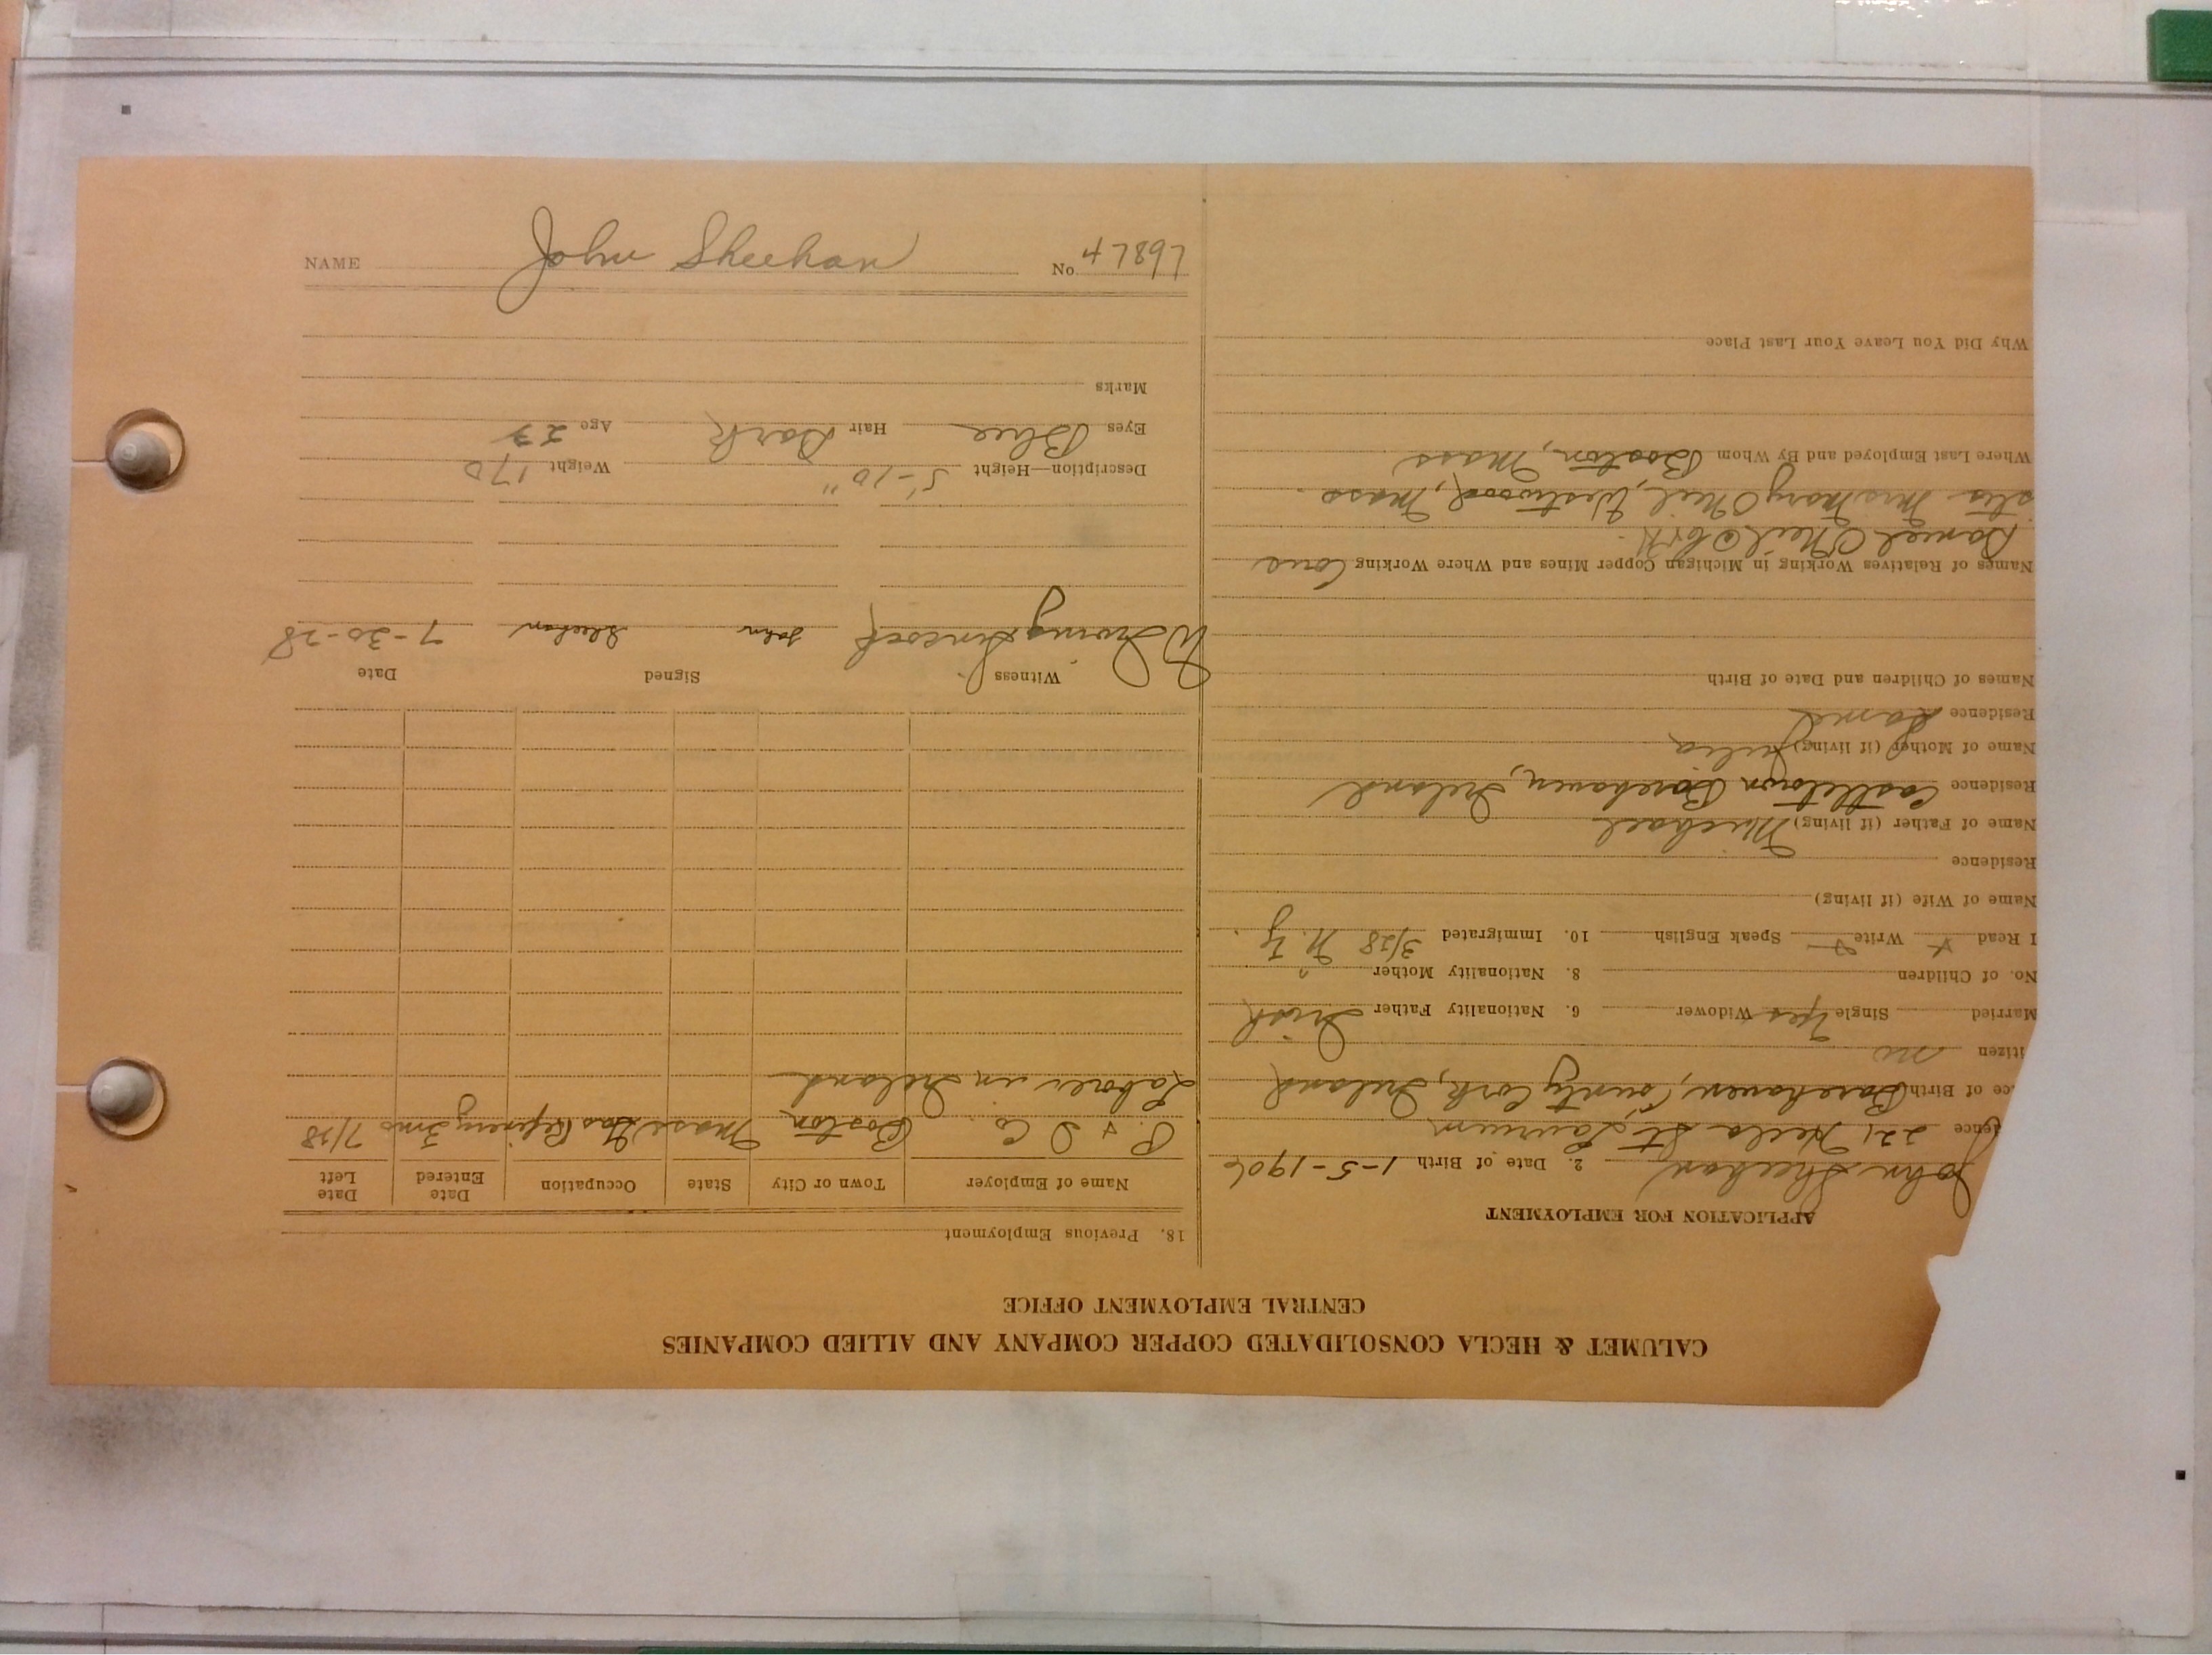 CALUMET & HECLA CONSOLIDATED COPPER COMPANY AND ALLIED COMPANIES
CENTRAL EMPLOYMENT OFFICE
APPLICATION FOR EMPLOYMENT
John Sheehan 2. Date of Birth 1-5-1906
ence 221 Hecla St Laurium
ce of Birth Barehaven, County Cork, Ireland
itizen no
Married Single Yes Widower 6. Nationality Father Irish
No. of Children 8. Nationality Mother "
I Read x Write x Speak English 10. Immigrated 3/28 N.Y.
Name of Wife (if living)
Residence
Name of Father (if living) Michael
Residence Castletown Barehaven, Ireland
Name of Mother (if living) Julia
Residence Same
Names of Children and Date of Birth
Names of Relatives Working in Michigan Copper Mines and Where Working Cous
Daniel O'Neil
Mrs Mary O'Neil, Westwood, Mass.
Where Last Employed and By Whom Boston, Mass
Why Did You Leave Your Last Place
18. Previous Employment
Name of Employer Town or City State Occupation Date Entered Date Left
P. & D Co. Boston Mass Gas Refinery 3mos 7/28
Laborer in Ireland
Witness Signed Date
W Irving John Sheehan 7-30-28
Description—Height 5'-10" Weight 170
Eyes Blue Hair Dark Age 23
Marks
NAME John Sheehan No. 47897